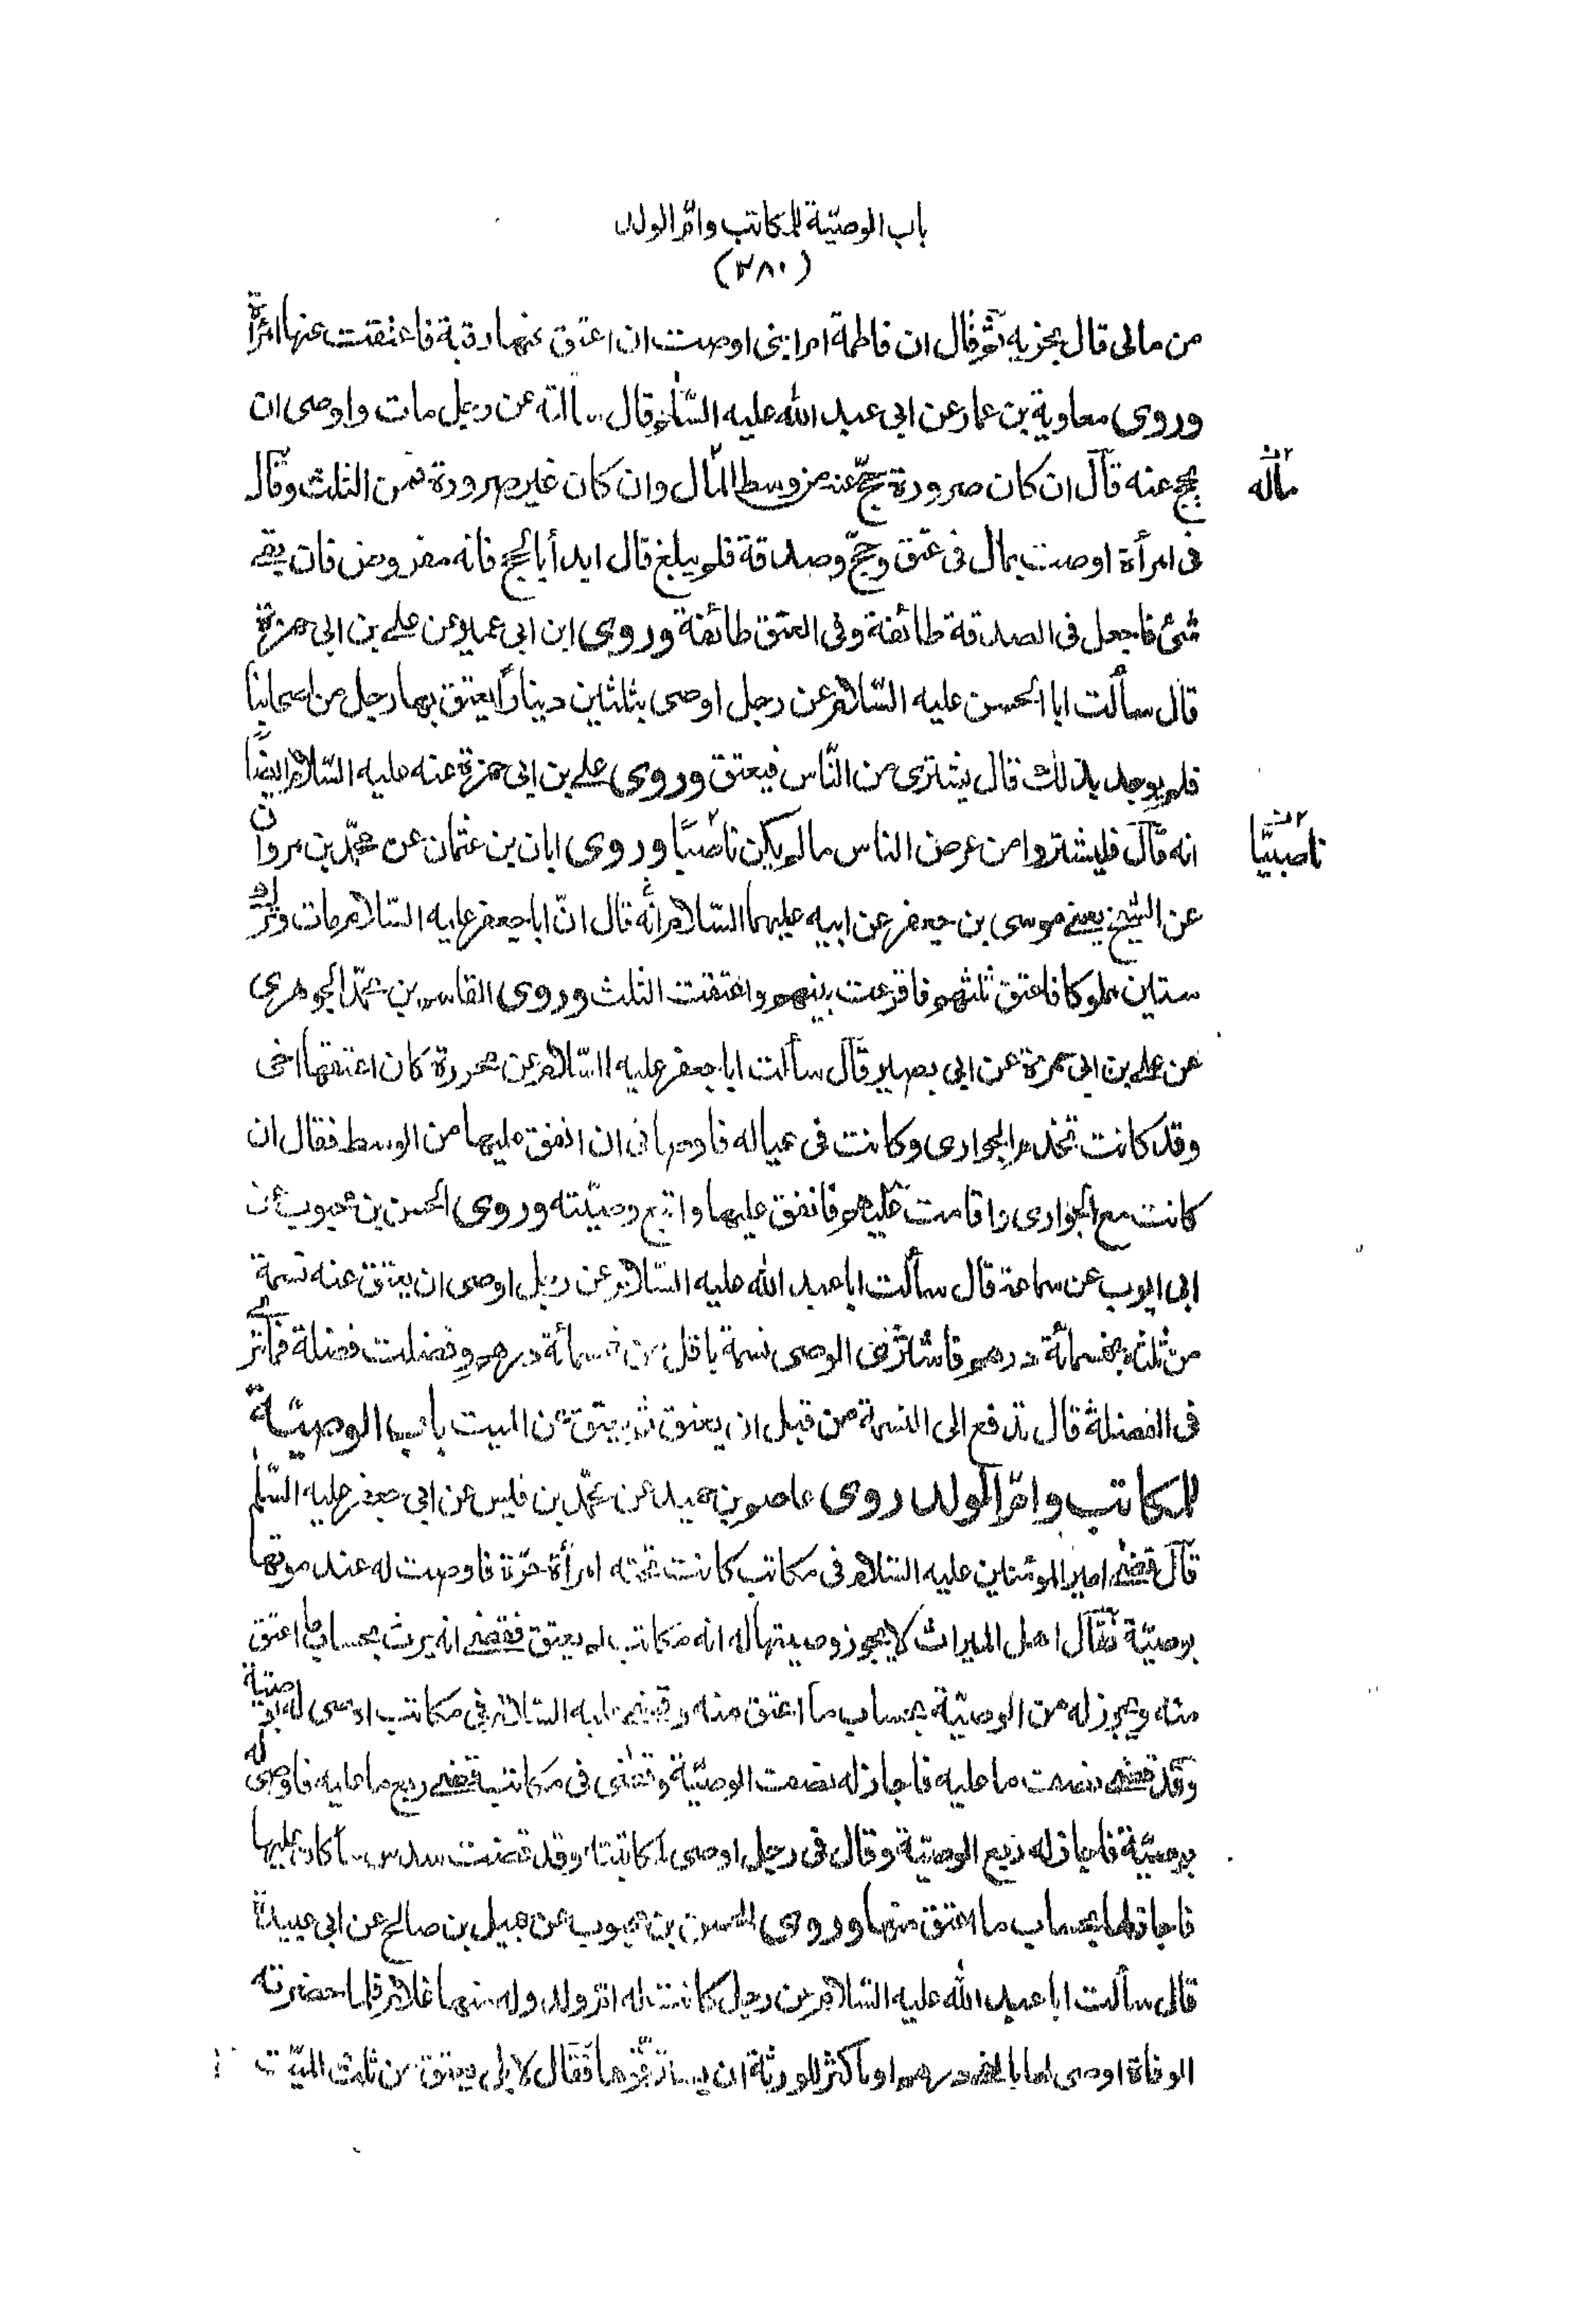 باب الوصيّة للمكاتب وامّ الولد
(٣٨٠)
من مالى قال يجزيه ثمّ قال ان فاطمة ام ابنى اوصت ان اعتق عنها رقبة فاعتقت عنها امرأة
وروى معاوية بن عمار عن ابى عبد الله عليه السّلام قال سألته عن رجل مات واوصى ان
يحج عنه قال ان كان صرورة يحجّ عنه من وسط المال وان كان غير صرورة فمن الثلث وقال
ماله
فى امرأة اوصت بمال فى عتق وحجّ وصدقة فلم يبلغ قال ابدأ بالحج فانه مفروض فان بقى
شئ فاجعل فى الصدقة طائفة وفى العتق طائفة وروى ابن ابى عمير عن على بن ابى حمزة
قال سألت ابا الحسن عليه السّلام عن رجل اوصى بثلثين دينارًا يعتق بها رجل من اصحابنا
فلم يوجد بذلك قال يشترى من النّاس فيعتق وروى على بن ابى حمزة عنه عليه السّلام ايضًا
انه قال فليشتروا من عرض الناس ما لم يكن ناصبًا وروى ابان بن عثمان عن محمّد بن مروان
ناصبيًّا
عن الشيخ يعنى موسى بن جعفر عن ابيه عليهما السّلام انّه قال انّ ابا جعفر عليه السّلام مات وترك
ستين مملوكا فاعتق ثلثهم فاقرعت بينهم واعتقت الثلث وروى القاسم بن محمّد الجوهرى
عن على بن ابى حمزة عن ابى بصير قال سألت ابا جعفر عليه السّلام عن محررة كان اعتقها اخى
وقد كانت تخدم الجوارى وكانت فى عياله فاوصانى ان انفق عليها من الوسط فقال ان
كانت مع الجوارى واقامت عليهم فانفق عليها واتبع وصيّته وروى الحسن بن محبوب عن
ابى ايوب عن سماعة قال سألت ابا عبد الله عليه السّلام عن رجل اوصى ان يعتق عنه نسمة
من ثلثه بخمسمائة درهم فاشترى الوصى نسمة باقل من خمسمائة درهم وفضلت فضلة فما ترى
فى الفضلة قال تدفع الى النسمة من قبل ان يعتق ثم يعتق عن الميت باب الوصيّة
للمكاتب وامّ الولد روى عاصم بن حميد عن محمّد بن قيس عن ابى جعفر عليه السّلم
قال قضى امير المؤمنين عليه السّلام فى مكاتب كانت تحته امرأة حرّة فاوصت له عند موتها
بوصيّة فقال اهل الميراث لا يجوز وصيتها له انه مكاتب لم يعتق فقضى انه يرث بحساب ما اعتق
منه ويجوز له من الوصيّة بحساب ما اعتق منه وقضى عليه السّلام فى مكاتب اوصى له بوصيّة
وقد قضى نصف ما عليه فاجاز له نصف الوصيّة وقضى فى مكاتب قضى ربع ما عليه فاوصى له
بوصيّة فاجاز له ربع الوصيّة وقال فى رجل اوصى لمكاتبته وقد قضت سدس ما كان عليها
فاجاز لها بحساب ما اعتق منها وروى الحسن بن محبوب عن جميل بن صالح عن ابى عبيدة
قال سألت ابا عبد الله عليه السّلام عن رجل كانت له امّ ولد وله منها غلام فلما حضرته
الوفاة اوصى لها بالفى درهم او باكثر للورثة ان يسترقّوها فقال لا بل يعتق من ثلث الميّت